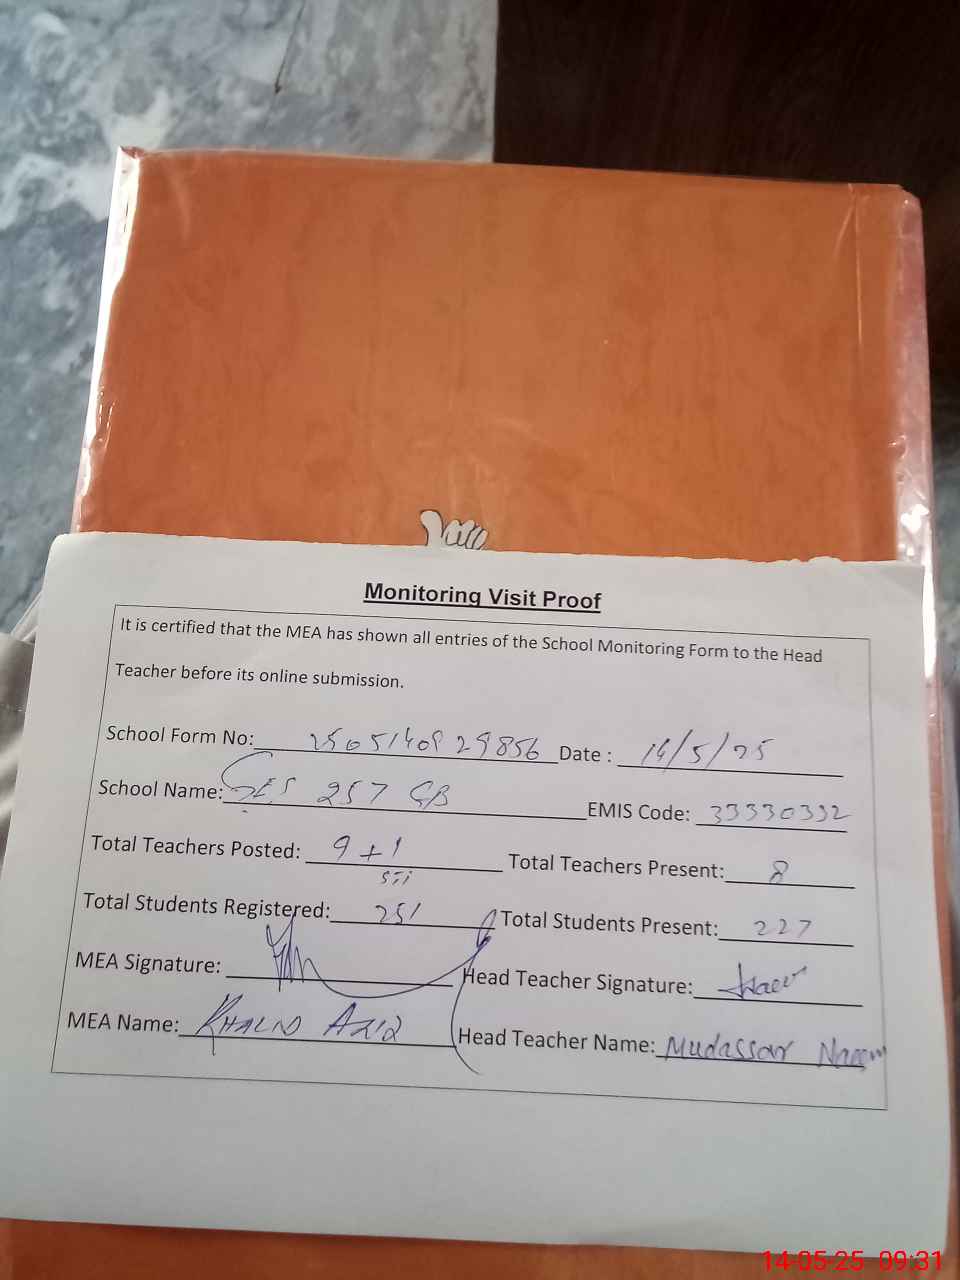 Monitoring Visit Proof
It is certified that the MEA has shown all entries of the School Monitoring Form to the Head
Teacher before its online submission.
School Form No: 25051408 29856 Date : 14/5/25
School Name: GES 257 GB EMIS Code: 33330332
Total Teachers Posted: 9+1 Total Teachers Present: 8
STI
Total Students Registered: 251 Total Students Present: 227
MEA Signature: Head Teacher Signature:
MEA Name: KHALID AZIZ Head Teacher Name: Mudassar Naeem
14-05-25 09:31